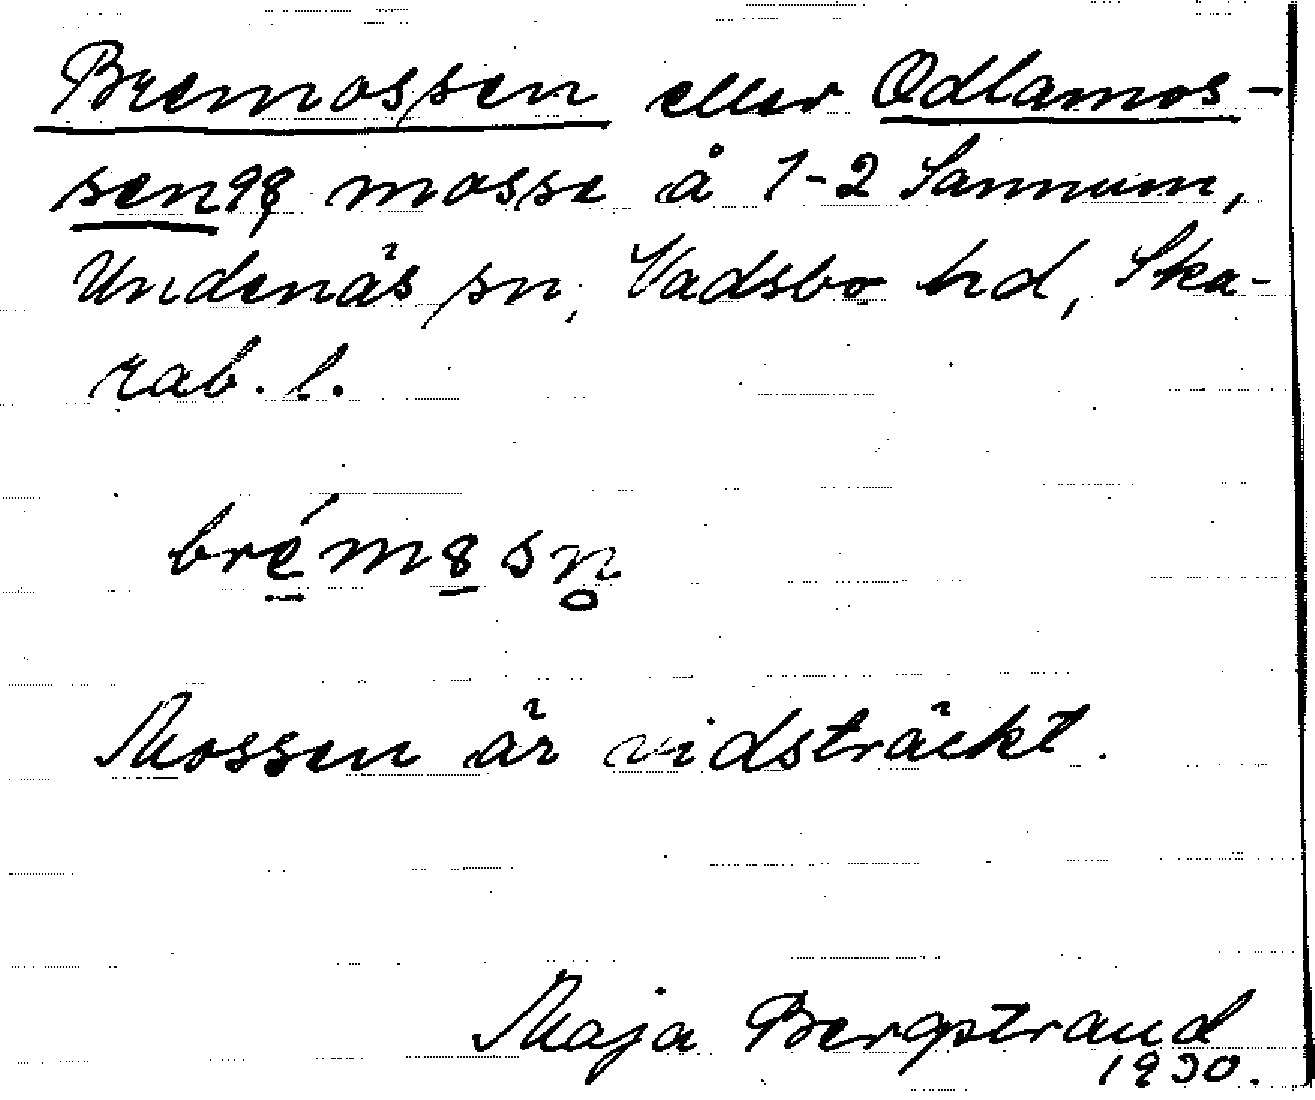 Bremossen eller Odlamos-
sen 98, mosse å 1-2 Sannum,
Undenäs sn, Vadsbo hd, Ska-
rab. l.
brém8sn̥
Mossen är vidsträckt.
Maja Bergstrand
1930.